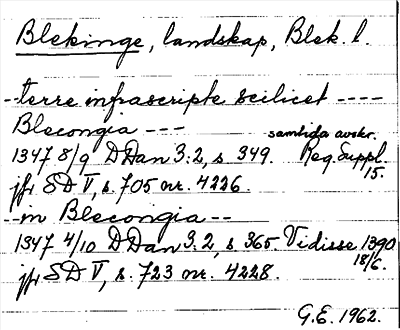 Blekinge, landskap, Blek. l.
--terre infrascripte scilicet ----
Blecongia ---
samtida avskr.
1347 8/9 DDan 3:2, s. 349. Reg. Suppl. 15.
jfr SD V, s. 705 nr. 4226.
--in Blecongia--
1347 4/10 DDan 3:2, s. 365. Vidisse 1390 18/6.
jfr SD V, s. 723 nr. 4228.
G.E. 1962.